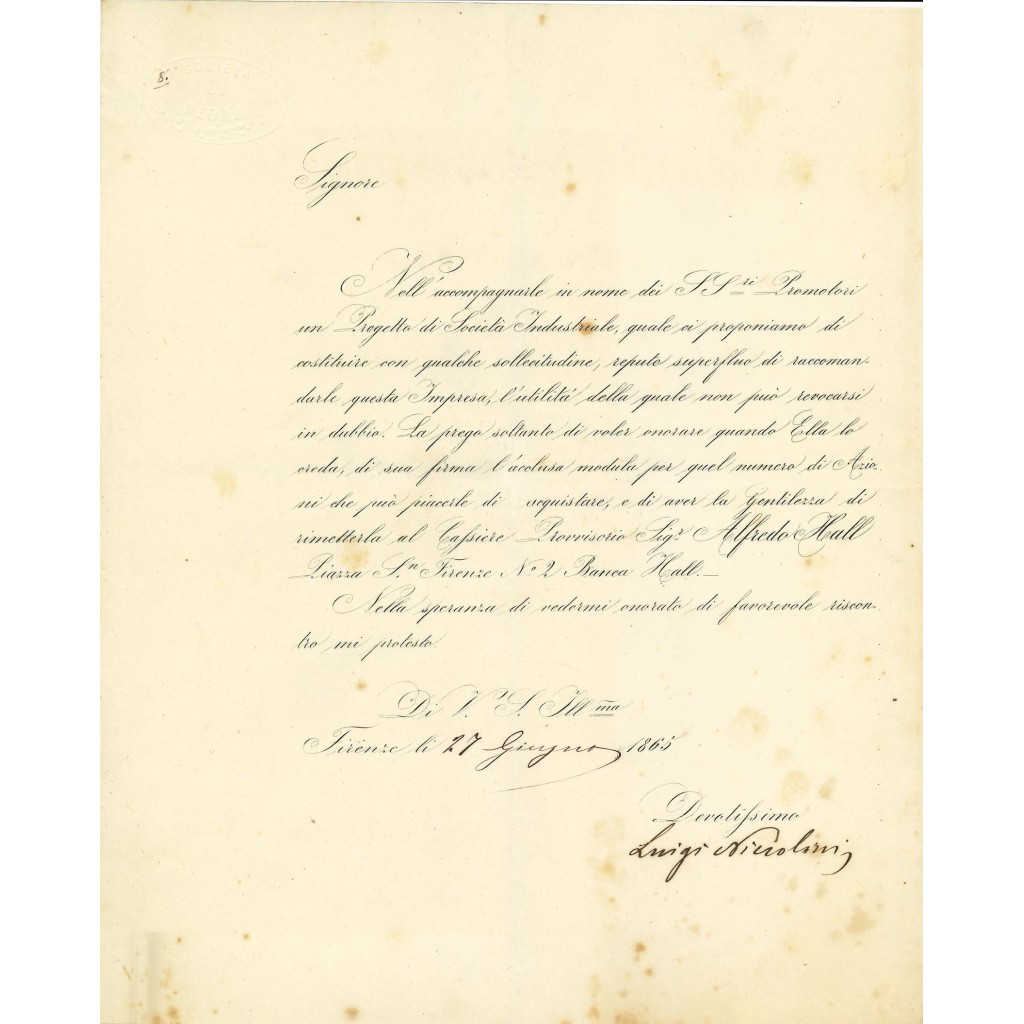 8.
SOCIETA
Signore
Nell'accompagnarle in nome dei SS.ri Promotori
un Progetto di Società Industriale, quale ci proponiamo di
costituire con qualche sollecitudine, reputo superfluo di raccoman-
darle questa Impresa, l'utilità della quale non può revocarsi
in dubbio. La prego soltanto di voler onorare quando Ella lo
creda, di sua firma l'acclusa modula per quel numero di Azio-
ni che può piacerle di acquistare, e di aver la Gentilezza di
rimetterla al Cassiere Provvisorio Sig.r Alfredo Hall
Piazza S.n Firenze N.o 2 Banca Hall.—
Nella speranza di vedermi onorato di favorevole riscon-
tro mi protesto.
Di V. S. Ill.ma
Firenze li 27 Giugno 1865
Devotissimo
Luigi Niccolini